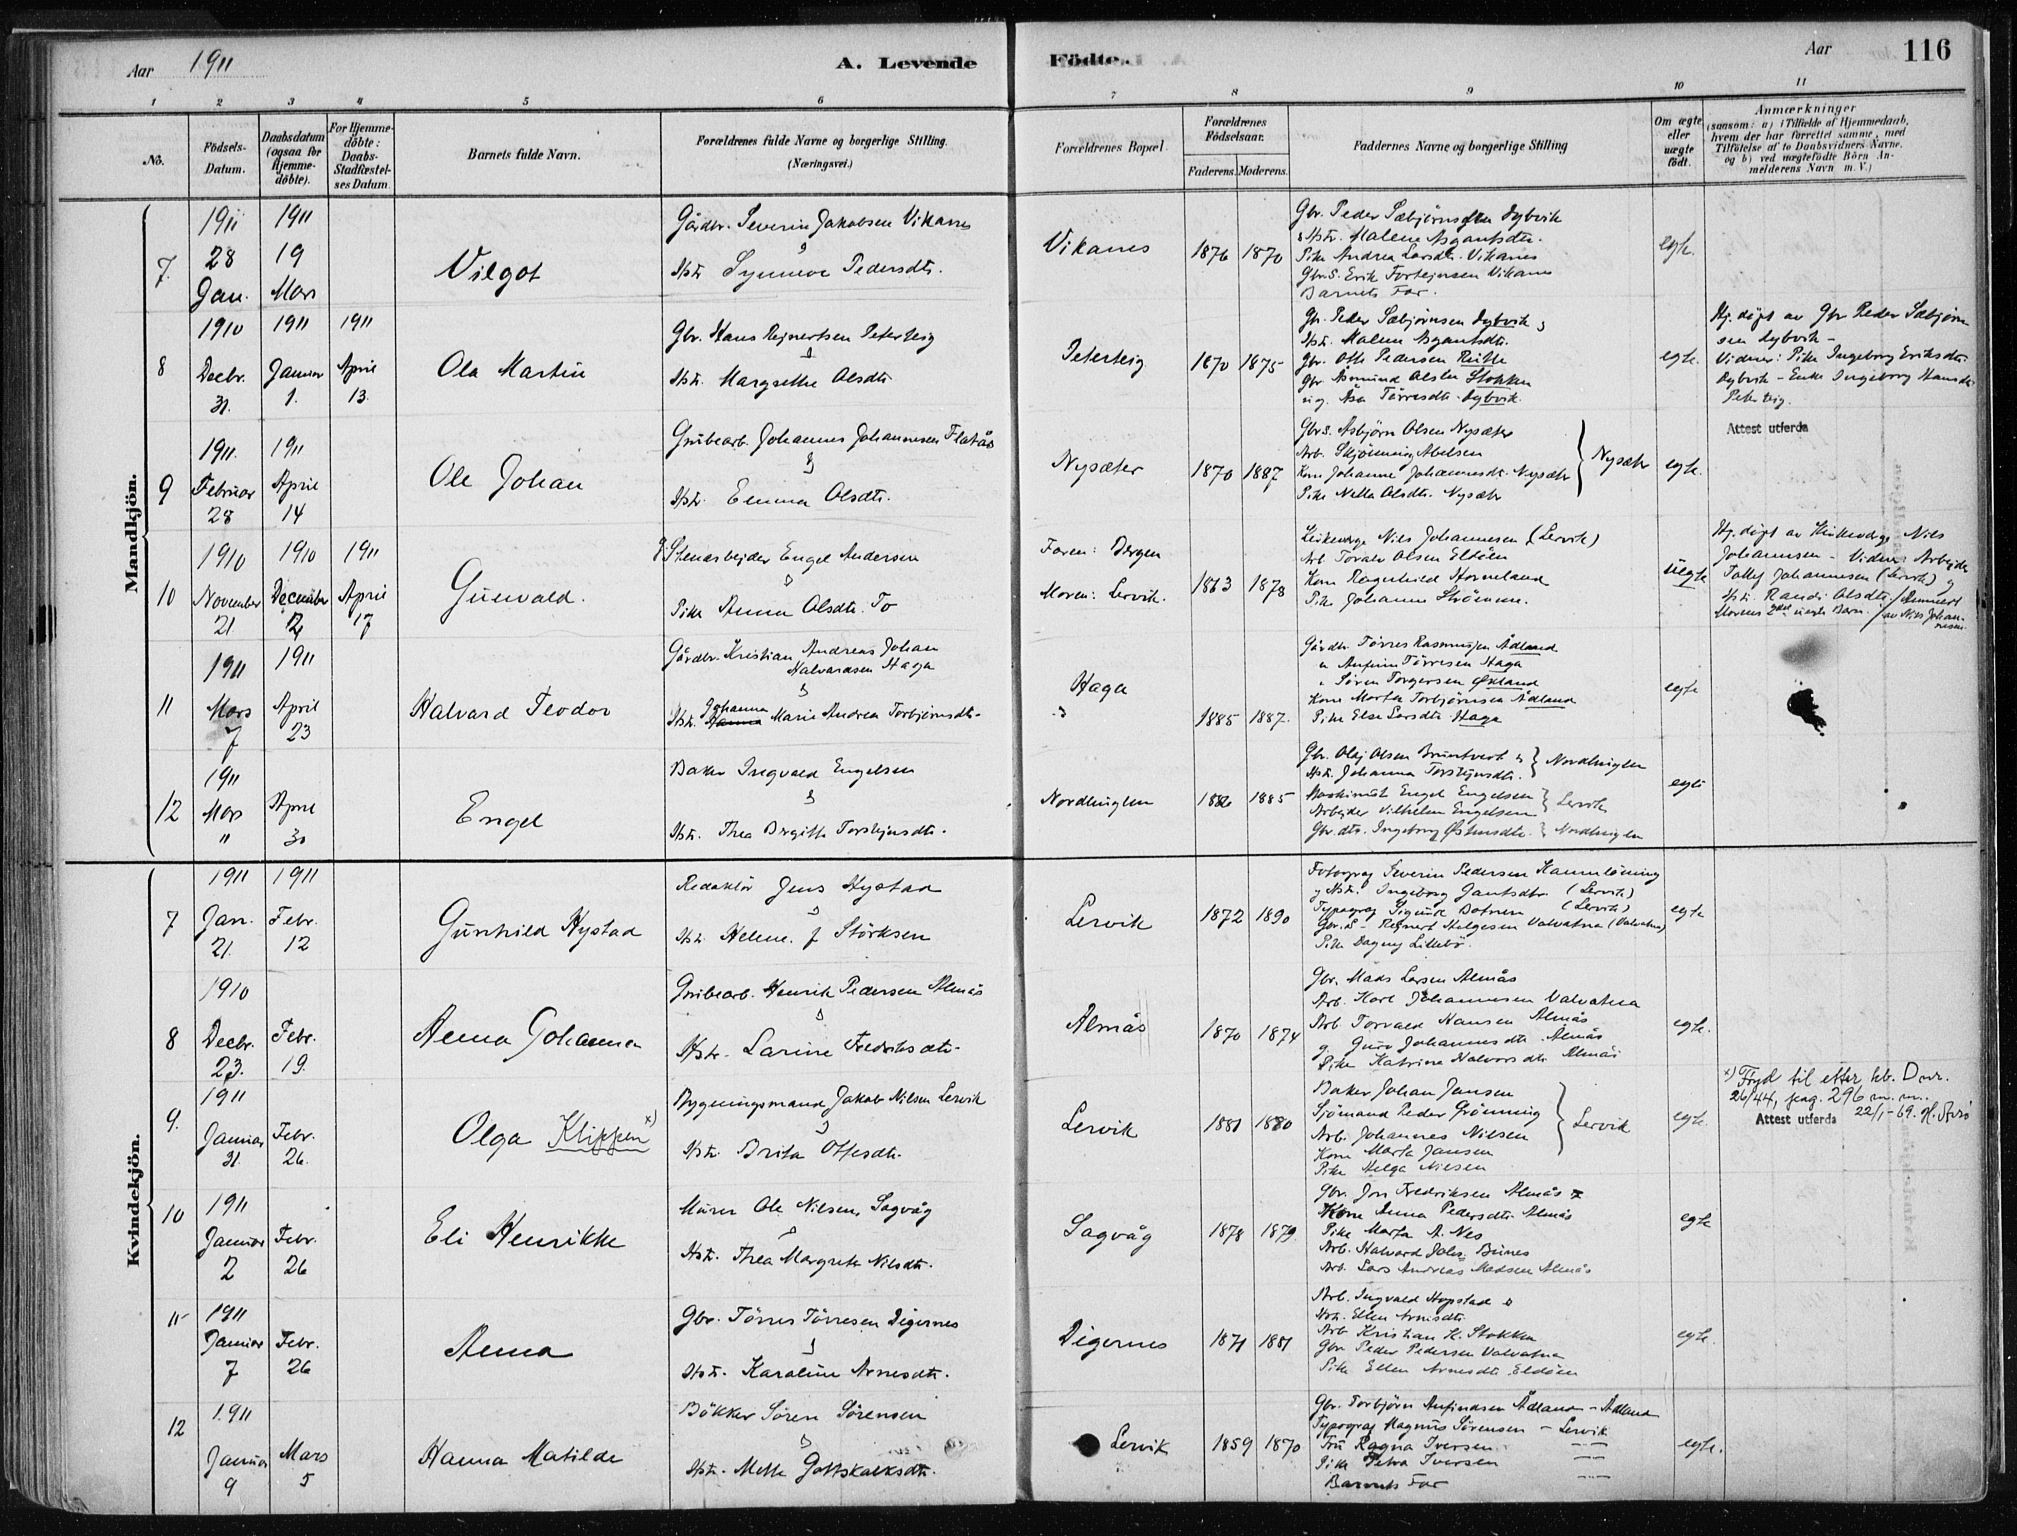 Aar 1911
A. Levende
Födte.
Aar
116
1 2 3 4 5 6 7 8 9 10 11
No.
Födsels-Datum.
Daabsdatum (ogsaa for Hjemme-döbte).
For Hjemme-döbte: Daabs-Stadfæstel-ses Datum.
Barnets fulde Navn.
Forældrenes fulde Navne og borgerlige Stilling. (Næringsvei.)
Forældrenes Bopæl.
Forældrenes Födselsaar.
Faderens. Moderens.
Faddernes Navne og borgerlige Stilling
Om ægte eller uægte födt.
Anmærkninger
(saasom: a) i Tilfælde af Hjemmedaab, hvem der har forrettet samme, med Tilföielse af to Daabsvidners Navne. og b) ved uægtefödte Börn An-melderens Navn m. V.)
Mandkjön.
7.
1911 28 Jan.
1911 19 Mars
Vilgot
Gårdbr. Severin Jakobsen Vikanes
&
Hstr. Synneve Pedersdtr.
Vikanes
1876 1870
Gbr. Peder Sæbjørnsen Dybvik
& Hstr. Malene Asgautsdtr.
Pike Andrea Larsdtr. Vikanes
Gbr.S. Erik Torstejnsen Vikanes
Barnets Far.
egte.
8
1910 Decbr. 31.
1911 Januar 1.
1911 April 13.
Ola Martin
Gbr. Hans Rejnertsen Peterteig
&
Hstr. Margrethe Olsdtr.
Peterteig
1870 1875
Gbr. Peder Sæbjørnsen Dybvik &
Hstr. Malene Asgautsdtr.
Gbr. Otto Pedersen
Gbr. Åsmund Olsen Stokken
ug. Åsa Tørresdtr. Dybvik.
egte.
Hj.døpt av Gbr Peder Sæbjørn-
sen Dybvik -
Vidner: Pike Ingeborg Eriksdtr.
Dybvik - Enke Ingeborg Hansdtr
Peterteig.
9
1911. Februar 28
1911 April 14
Ole Johan
Grubearb. Johannes Johannesen Flatås
&
Hstr. Emma Olsdtr.
Nysæter
1870 1887
Gbr.s. Asbjörn Olsen Nysæter
Arb. Skjönning Abelsen
Kone Johanne Johannesdtr. Nysæter
Pike Nella Olsdtr. Nysæter
Nysæter
egte.
Attest utferda
10
1910 November 21
1910 December 12
1911 April 17
Gunvald.
Stenarbejder Engel Andersen
&
Pike Anna Olsdtr. To
Faren: Bergen
Moren: Lervik.
1863 1878
Nils Johannesen (Lervik)
Arb. Torvald Olsen Eldöen
Kone Ragnhild Hovneland
Pike Johanne Strömme.
uegte
Hj.døpt av Nils
Johannesen - Vidner: Arbejder
Tollef Johannesen (Lervik) &
Hstr. Randi Olsdtr.
Morens 2det uegte Barn. av Nils Johan-
nesen.
11
1911 Mars 7
1911 April 23
Halvard Teodor
Gårdbr. Kristian Andreas Johan
Halvardsen Haga
&
Johanna
Hstr. Hanna Marie Andrea Torbjörnsdtr.
Haga
1885 1887.
Gårdbr. Tørres Rasmussen Ådland
" Anfinn Tørresen Haga
" Søren Torgersen Økland
Kone Marta Torbjørnsen Ådland
Pike Else Larsdtr. Haga
egte
12
1911 Mars "
April 30
Engel
Baker Ingvald Engelsen
&
Hstr. Thea Bergitte Torstejnsdtr.
Nordhuglen
1886 1885
Gbr. Olaj Olsen Bruntvedt &
Hstr. Johanna Torstejnsdtr.
Nordhuglen
Maskinist Engel Engelsen
Arbejder Vilhelm Engelsen
Lervik
Gbr.dtr. Ingeborg Østensdtr. Nordhuglen
egte
Kvindekjön.
7
1911 Jan. 21.
1911 Febr. 12
Gunhild Hystad
Redaktör Jens Hystad
&
Hstr. Helene. f Störksen
Lervik
1872 1890
Fotograf Severin Pedersen
& Hstr. Ingeborg Jantsdtr (Lervik)
Typograf Sigurd Botnen (Lervik)
Gbr.s. Rejnert Helgesen Valvatna (Valvatna)
Pike Dagny Lillebö.
egte
8
1910 Decbr. 23.
Febr. 19.
Anna Johanna
Grubearb. Henrik Pedersen Almås
&
Hstr. Larine Fredriksdtr.
Almås
1870 1874
Gbr. Mads Larsen Almås
Arb. Karl Johannesen Valvatna
Arb Torvald Hansen Almås
g. Guro Johannesdtr. Almås
Pike Katrine Halvorsdtr Almås
egte.
9.
1911 Januar 31.
Febr. 26.
Olga Klippen x)
Bygningsmand Jakob Nilsen Lervik
&
Hstr. Brita Ottesdtr.
Lervik
1881 1880
Baker Johan Jansen
Sjømand Peder Grönning
Arb. Johannes Nilsen
Kone Marta Jansen
Pike Helga Nilsen
Lervik
egte.
x) Föyd til etter kb. Dnr.
26/44, pag. 296 m.m.
22/1-69.
Attest utferda
10
1911 Januar 2
Febr. 26
Eli Henrikke
Murer Ole Nilsen, Sagvåg
&
Hstr. Thea Margrete Nilsdtr.
Sagvåg
1878 1879.
Gbr. Jon Fredriksen Almås &
Kone Anna Pedersdtr. Almås
Pike Marta A. Nes
Arb. Halvard Johs. Bunes
Arb. Lars Andreas Madsen Almås
egte
11
1911 Januar 7
Febr. 26
Anna
Gbr. Törres Törresen Digernes
&
Hstr. Karoline Arnesdtr.
Digernes
1871 1881
Arb. Ingvald Hopstad &
Hstr. Ellen Arnesdtr.
Arb Kristian K. Stokken
Gbr Peder Pedersen Valvatna
Pike Ellen Arnesdtr Eldöen
egte.
12
1911 Januar 9
Mars 5
Hanna Matilde
Bökker Sören Sörensen
&
Hstr. Mette Gottskalksdtr.
Lervik
1859 1870
Gbr. Torbjörn Anfindsen Ådland - Ådland
Typograf Magnus Sörensen - Lervik
Fru Ragna Iversen
Pike Petra Iversen
Barnets Far
egte.